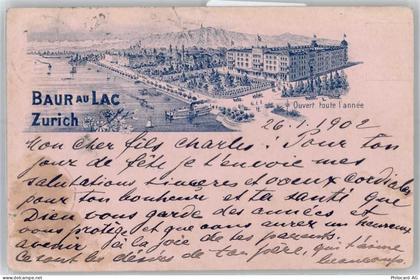 BAUR AU LAC
Zurich
Ouvert toute l'année
26.1.1902
Mon cher fils Charles! Pour ton
jour de fête je t'envoie mes
salutations sincères et vœux cordiales
pour ton bonheur et ta santé que
Dieu vous garde des années et
vous protège et que vous aurez un heureux
avenir à la joie de tes parents.
Ce sont les désirs de ton père, qui t'aime
beaucoup.